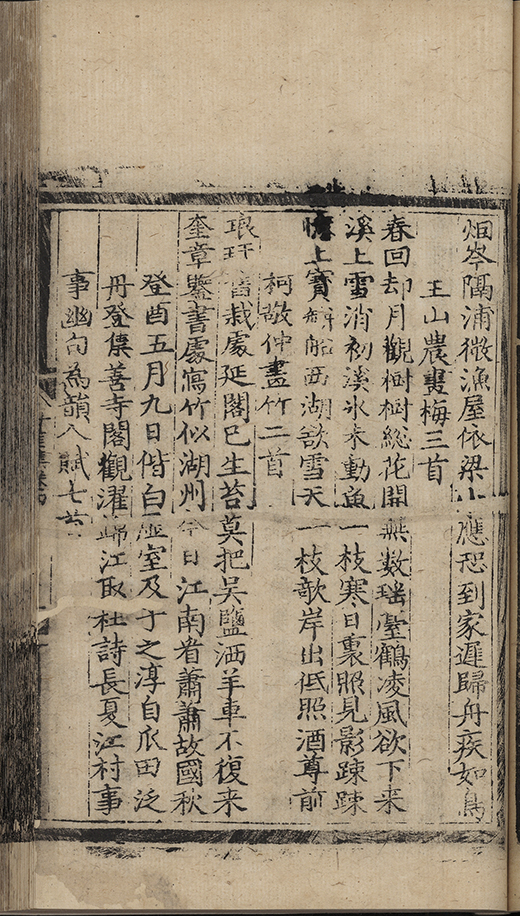 烟岑隔浦微漁屋依梁小應恐到家遲歸舟疾如鳥
王山農畫梅三首
春回却月觀樹樹総花開無數瑶臺鶴凌風欲下来
溪上雪消初溪氷未動魚一枝寒日裏照見影踈踈
憶上寶船西湖欲雪天一枝欹岸出低照酒尊前
柯敬仲畫竹二首
琅玕舊栽處延閣已生苔莫把吳鹽洒羊車不復来
奎章鑒書處寫竹似湖州今日江南看蕭蕭故國秋
癸酉五月九日偕白虛室及于之淳自瓜田泛
舟登集善寺閣觀濯錦江取杜詩長夏江村事
事幽句為韻人賦七首